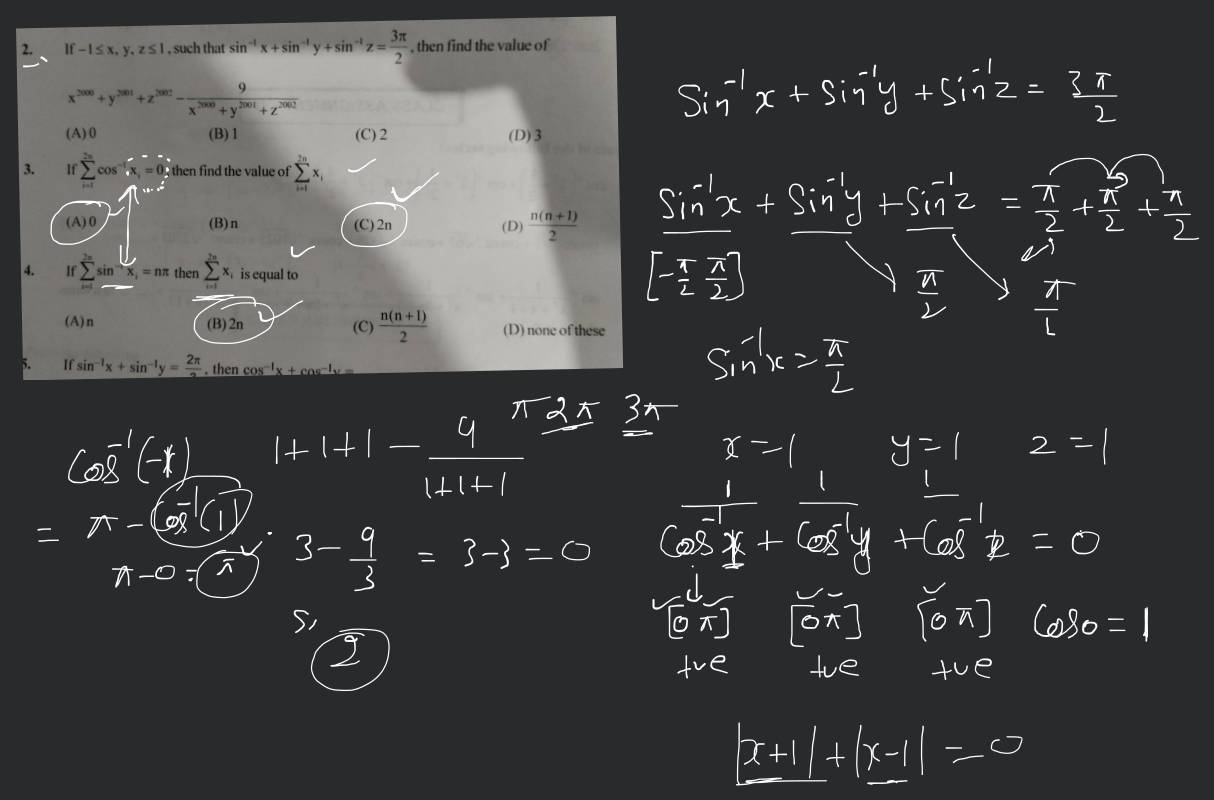 2. If −1 ≤ x, y, z ≤ 1, such that sin⁻¹ x + sin⁻¹ y + sin⁻¹ z = 3π/2, then find the value of
x²⁰⁰⁰ + y²⁰⁰¹ + z²⁰⁰² − 9/(x²⁰⁰⁰ + y²⁰⁰¹ + z²⁰⁰²)
(A) 0 (B) 1 (C) 2 (D) 3
3. If ∑_{i=1}^{2n} cos⁻¹ xᵢ = 0, then find the value of ∑_{i=1}^{2n} xᵢ
(A) 0 (B) n (C) 2n (D) n(n+1)/2
4. If ∑_{i=1}^{2n} sin⁻¹ xᵢ = nπ then ∑_{i=1}^{2n} xᵢ is equal to
(A) n (B) 2n (C) n(n+1)/2 (D) none of these
5. If sin⁻¹x + sin⁻¹y = 2π/, then cos⁻¹x + cos⁻¹y =
Sin⁻¹x + Sin⁻¹y + Sin⁻¹z = 3π/2
Sin⁻¹x + Sin⁻¹y + Sin⁻¹z = π/2 + π/2 + π/2
[-π/2 π/2] π/2
Sin⁻¹x = π/2
π 2π 3π
x = 1 y = 1 z = 1
1 1 1
Cos⁻¹x + Cos⁻¹y + Cos⁻¹z = 0
[0 π] [0 π] [0 π] Cos0 = 1
+ve +ve +ve
|x+1| + |x-1| = 0
= π - Cos⁻¹(1)
π - 0 = π
1+1+1 - 9/(1+1+1)
3 - 9/3 = 3-3 = 0
2